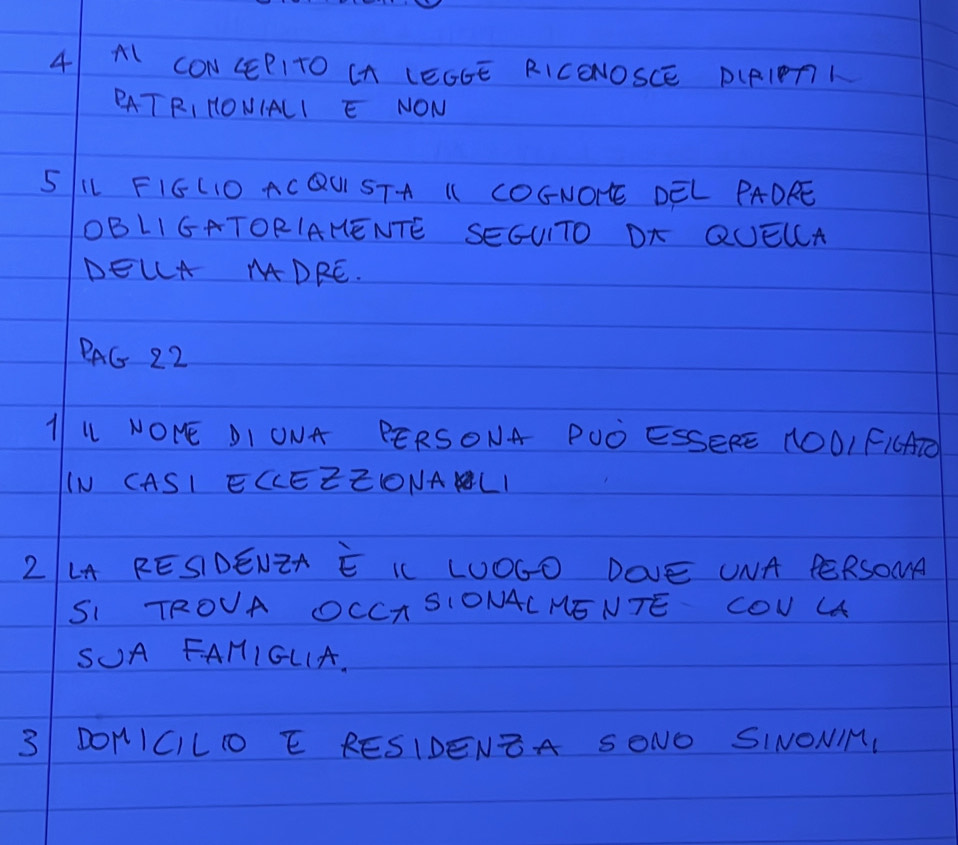 4 AL CONCEPITO LA LEGGE RICONOSCE
PATRIMONIALI E NON
5 IL FIGLIO ACQUISTA IL COGNOME DEL PADRE
OBLIGATORIAMENTE SEGUITO DA QUELLA
DELLA MADRE.
PAG 22
1 IL NOME DI UNA PERSONA PUÒ ESSERE MODIFICATO
IN CASI ECCEZZIONALI
2 LA RESIDENZA È IL LUOGO DOVE UNA PERSONA
SI TROVA OCCASIONALMENTE CON LA
SUA FAMIGLIA.
3 DOMICILIO E RESIDENZA SONO SINONIMI